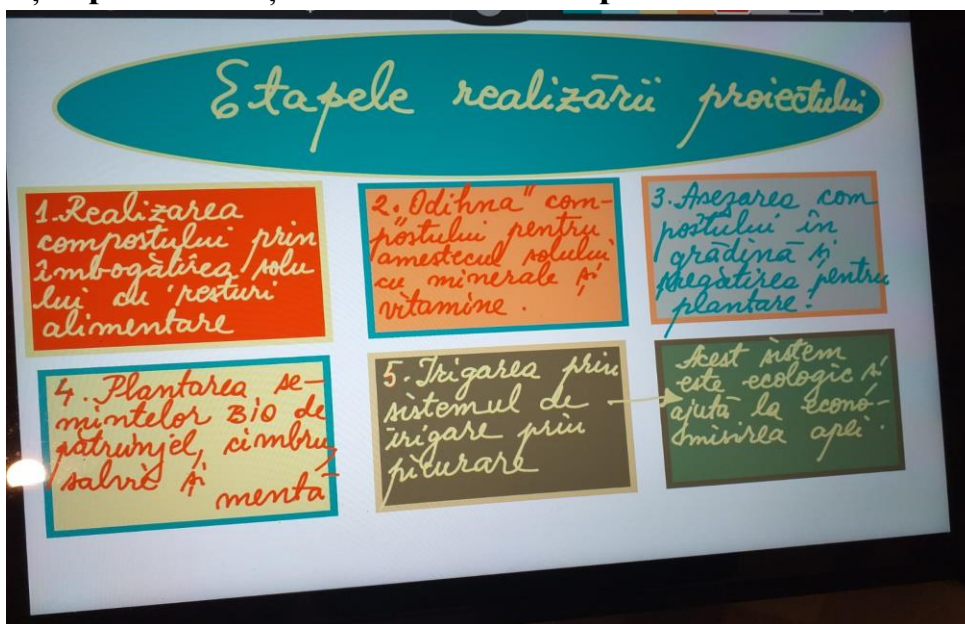 Etapele realizării proiectului
1. Realizarea
compostului prin
îmbogățirea solu
lui cu resturi
alimentare
2. "Odihna" com-
postului pentru
amestecul solului
cu minerale și
vitamine.
3. Așezarea com
postului în
grădină și
pregătirea pentru
plantare.
4. Plantarea se-
mințelor BIO de
pătrunjel, cimbru,
salvie și
mentă
5. Irigarea prin
sistemul de
irigare prin
picurare
Acest sistem
este ecologic și
ajută la econo-
misirea apei.